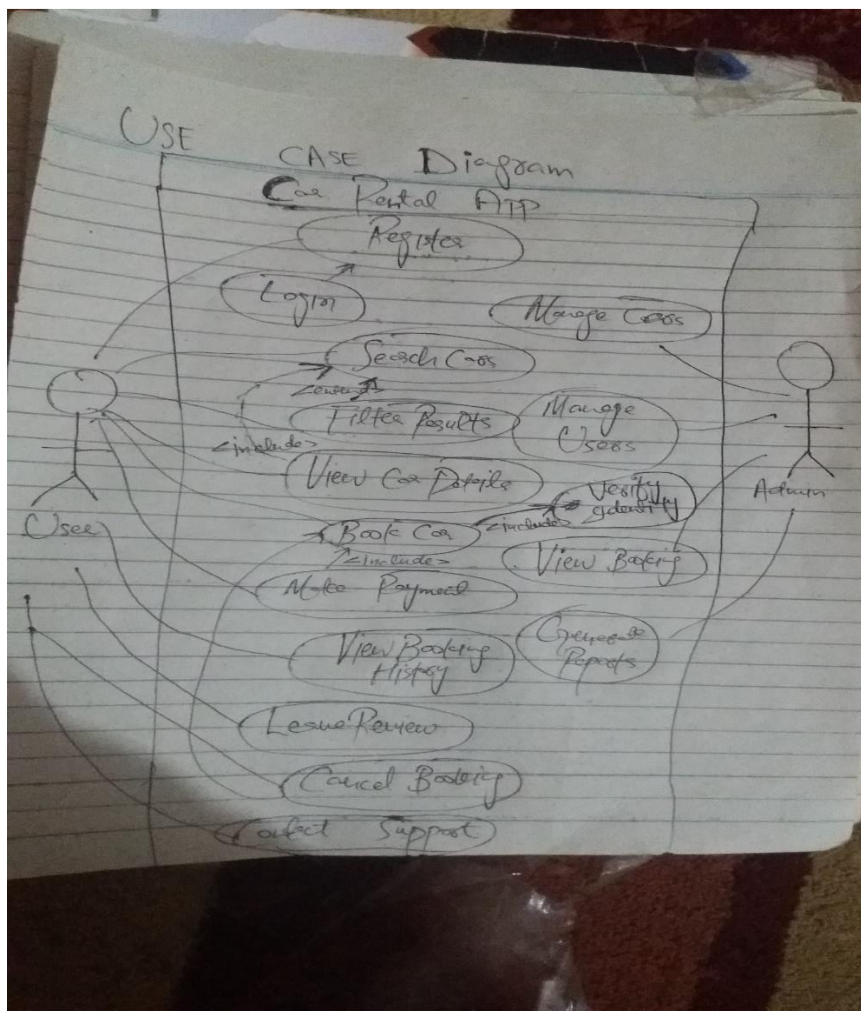 USE
CASE Diagram
Car Rental APP
Register
Login
Manage Cars
Search Cars
Filter Results
Manage
Users
<include>
View Car Details
Verify
Admin
User
Book Car
<include>
<include>
View Booking
Make Payment
View Booking
History
Generate
Reports
Leave Review
Cancel Booking
Contact Support